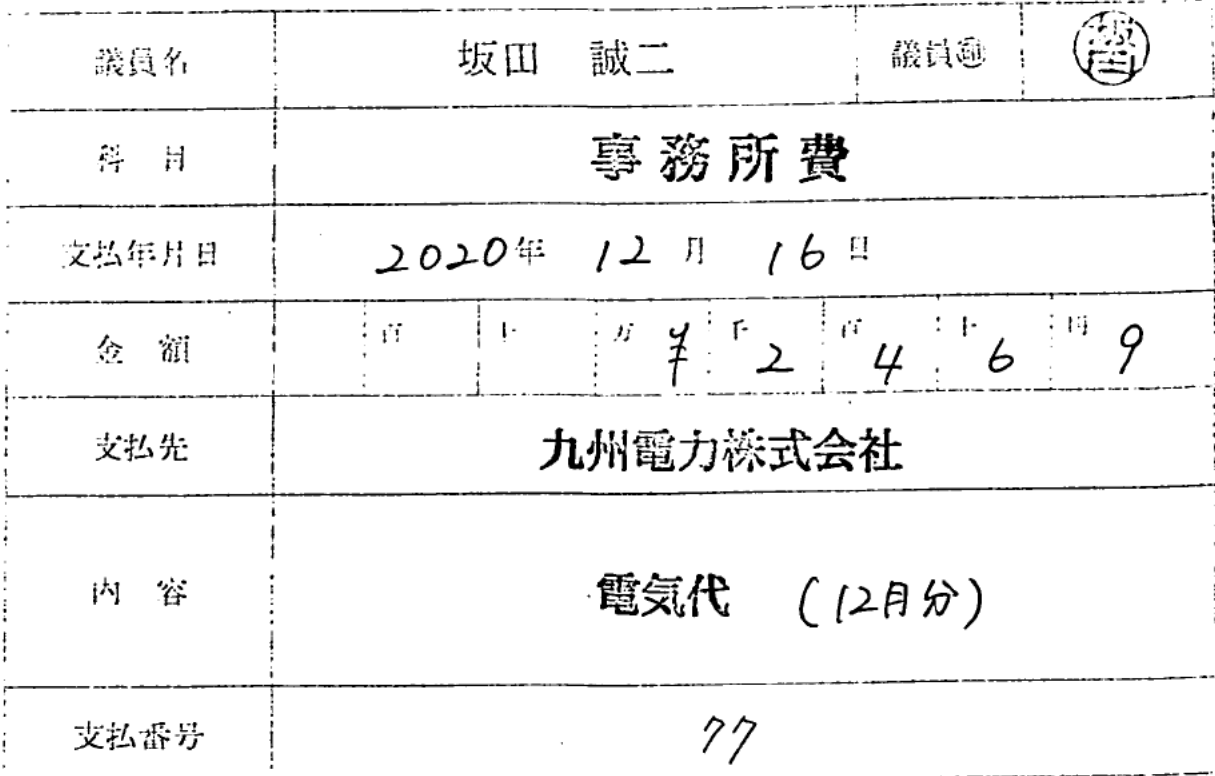 議員名 坂田 誠二 議員㊞ 坂田
科 目 事務所費
支払年月日 2020年 12月 16日
金 額 百 十 万 ¥ 千 2 百 4 十 6 円 9
支払先 九州電力株式会社
内 容 電気代 (12月分)
支払番号 77